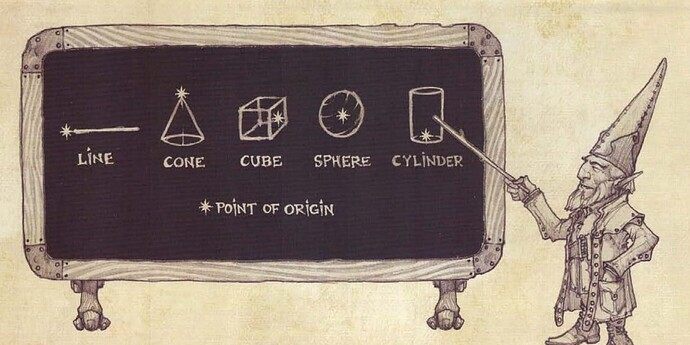 LINE CONE CUBE SPHERE CYLINDER
POINT OF ORIGIN